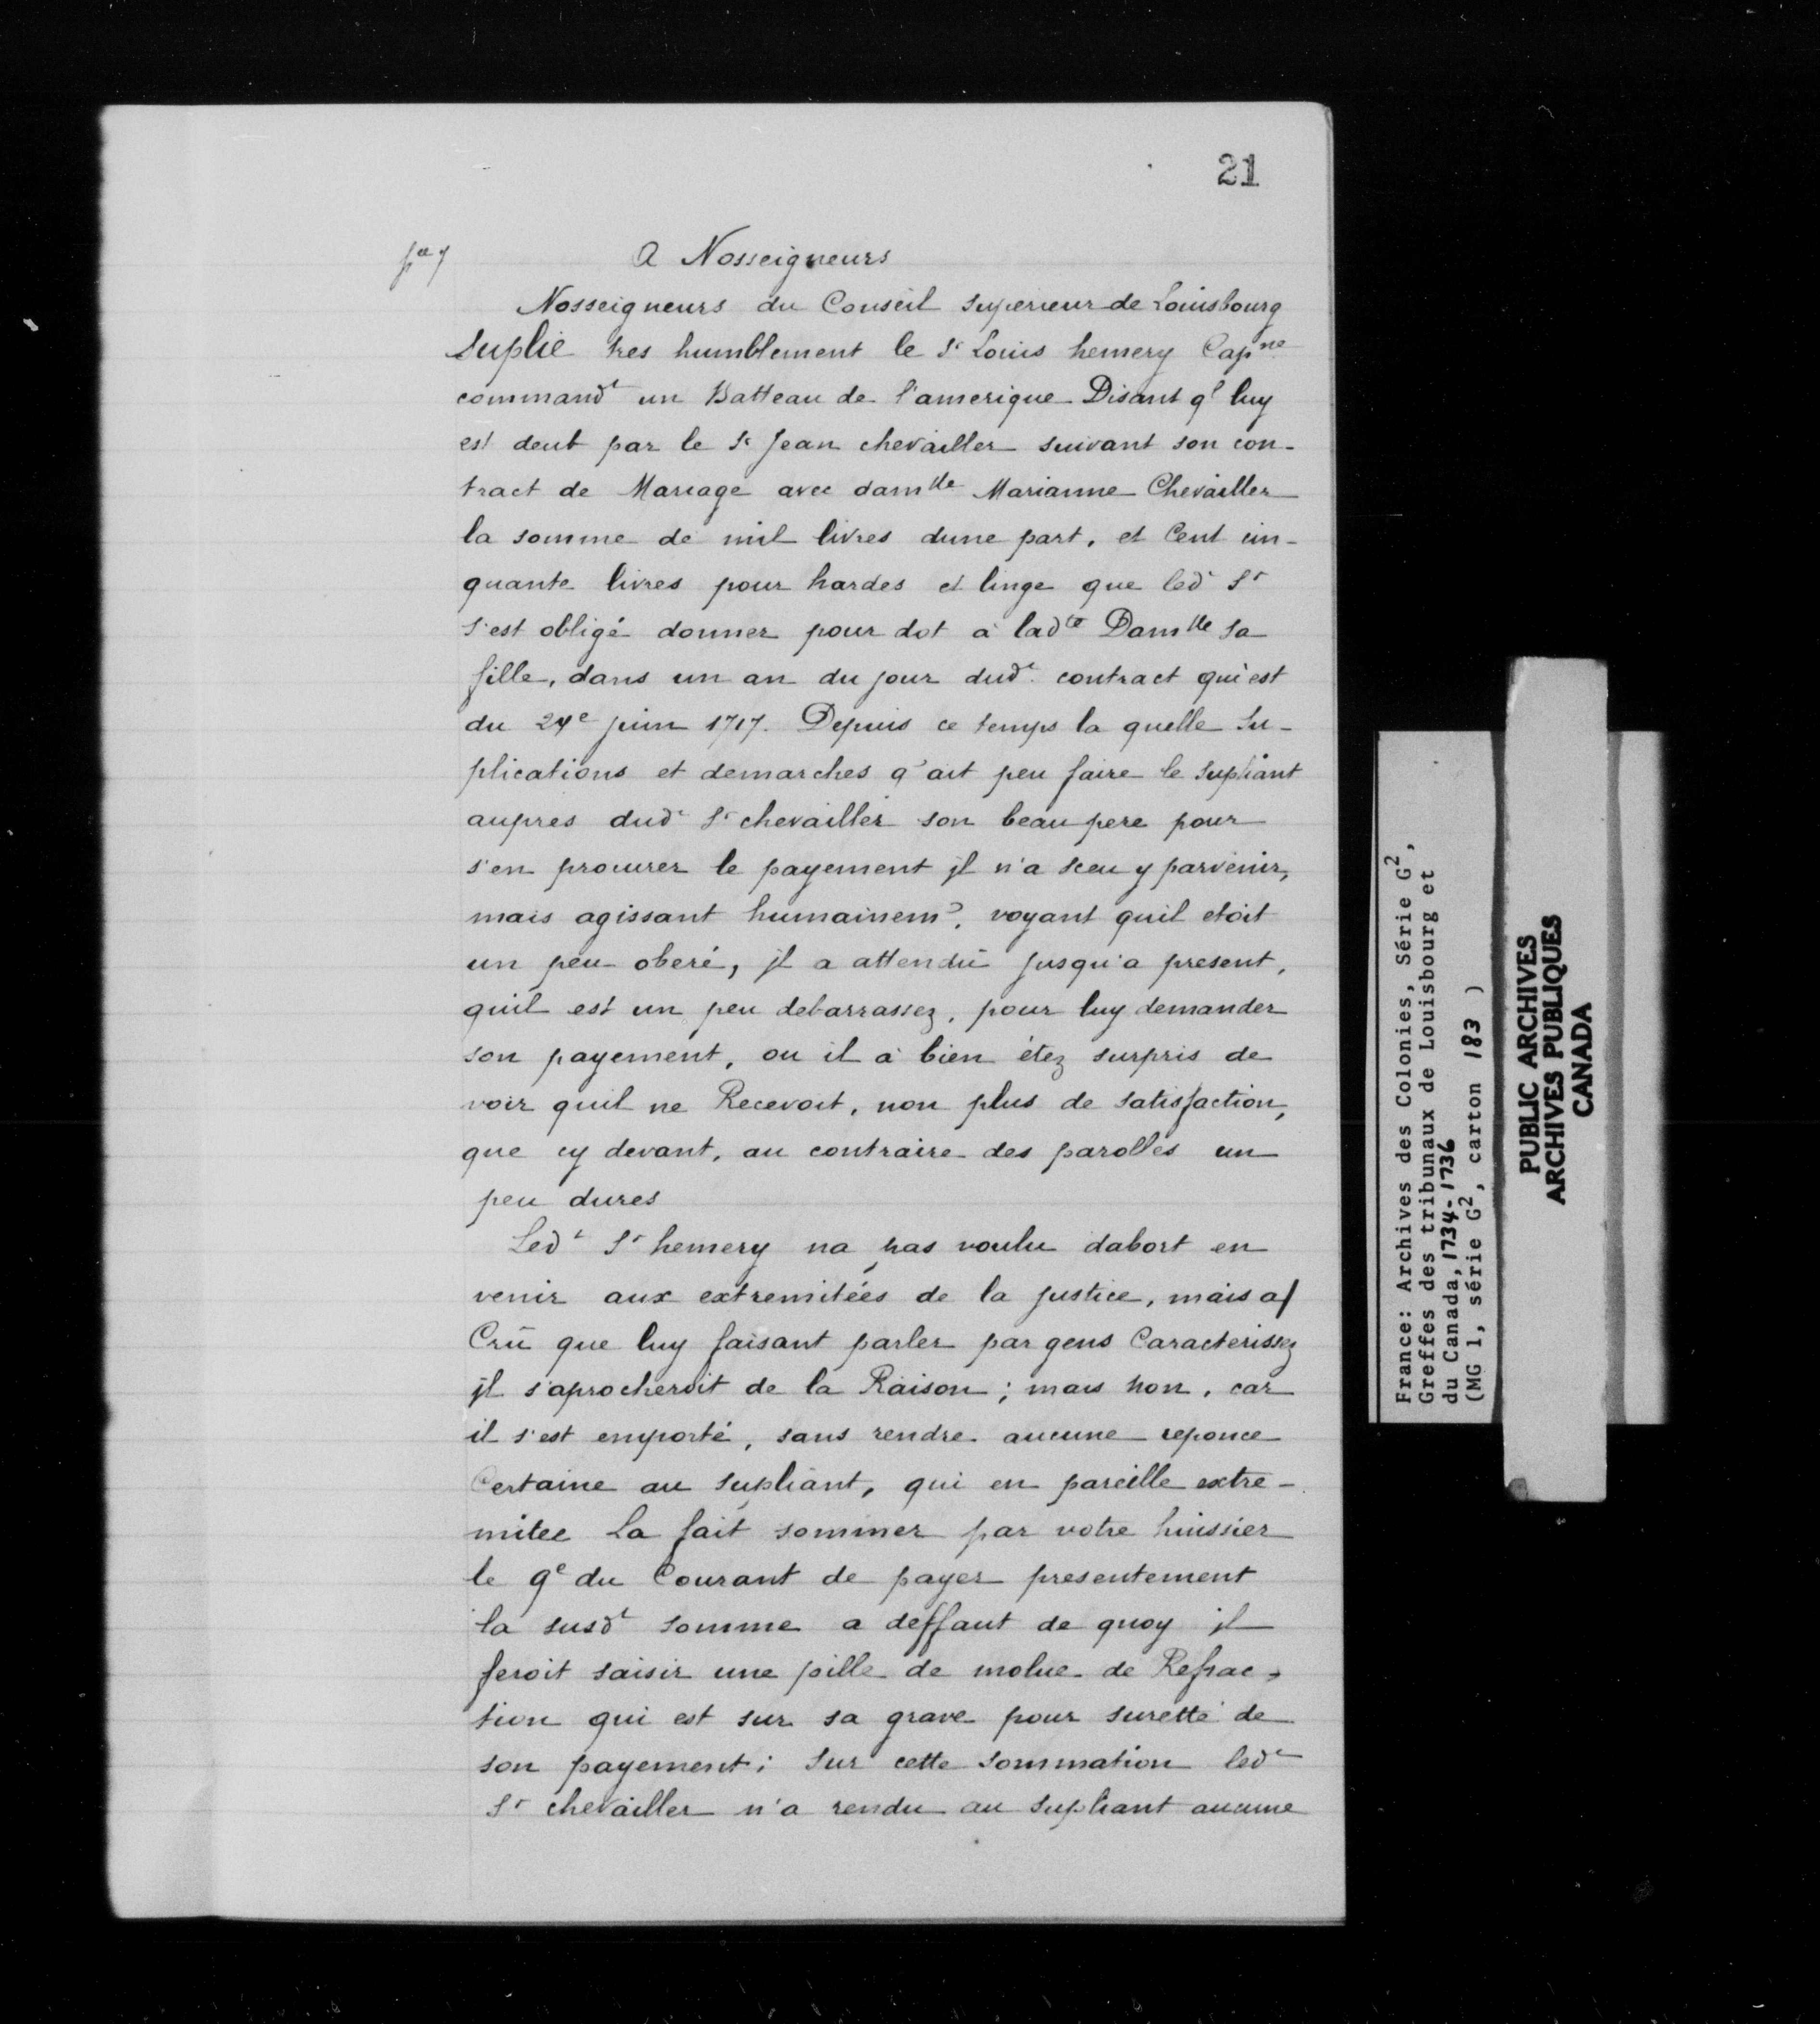 21
A Nosseigneurs
Nosseigneurs du Conseil superieur de Louisbourg
Suplie tres humblement le Sr Louis hemery Capne
commandt un Batteau de l'amerique Disant ql luy
est deut par le Sr Jean chevailler suivant son con-
tract de Mariage avec damlle Marianne Chevailler
la somme de mil livres dune part, et Cent cin-
quante livres pour hardes et linge que ledt Sr
s'est obligé donner pour dot à ladte Damlle sa
fille, dans un an du jour dudt contract qui est
du 24e juin 1717. Depuis ce temps la quelle Su-
plications et demarches q'ait peu faire le supliant
aupres dudt Sr chevailler son beau pere pour
s'en procurer le payement jl n'a sceu y parvenir,
mais agissant humainemt, voyant quil etoit
un peu oberé, jl a attendû jusqu'a present,
quil est un peu debarrassez, pour luy demander
son payement, ou il à bien étez surpris de
voir quil ne Recevoit, non plus de satisfaction,
que cy devant, au contraire des parolles un
peu dures
Ledt Sr hemery na pas voulu dabort en
venir aux extremitées de la justice, mais a
Crû que luy faisant parler par gens Caracterissez
jl s'aprocheroit de la Raison; mais non, car
il s'est emporté, sans rendre aucune reponce
Certaine au supliant, qui en pareille extre-
mitee La fait sommer par votre huissier
le 9e du Courant de payer presentement
la susdt somme a deffaut de quoy jl
feroit saisir une pille de molue de Refrac-
tion qui est sur sa grave pour suretté de
son payement; Sur cette sommation ledt
Sr chevailler n'a rendu au supliant aucune
France: Archives des Colonies, Série G2,
Greffes des tribunaux de Louisbourg et
du Canada, 1734-1736
(MG 1, série G2, carton 183 )
PUBLIC ARCHIVES
ARCHIVES PUBLIQUES
CANADA